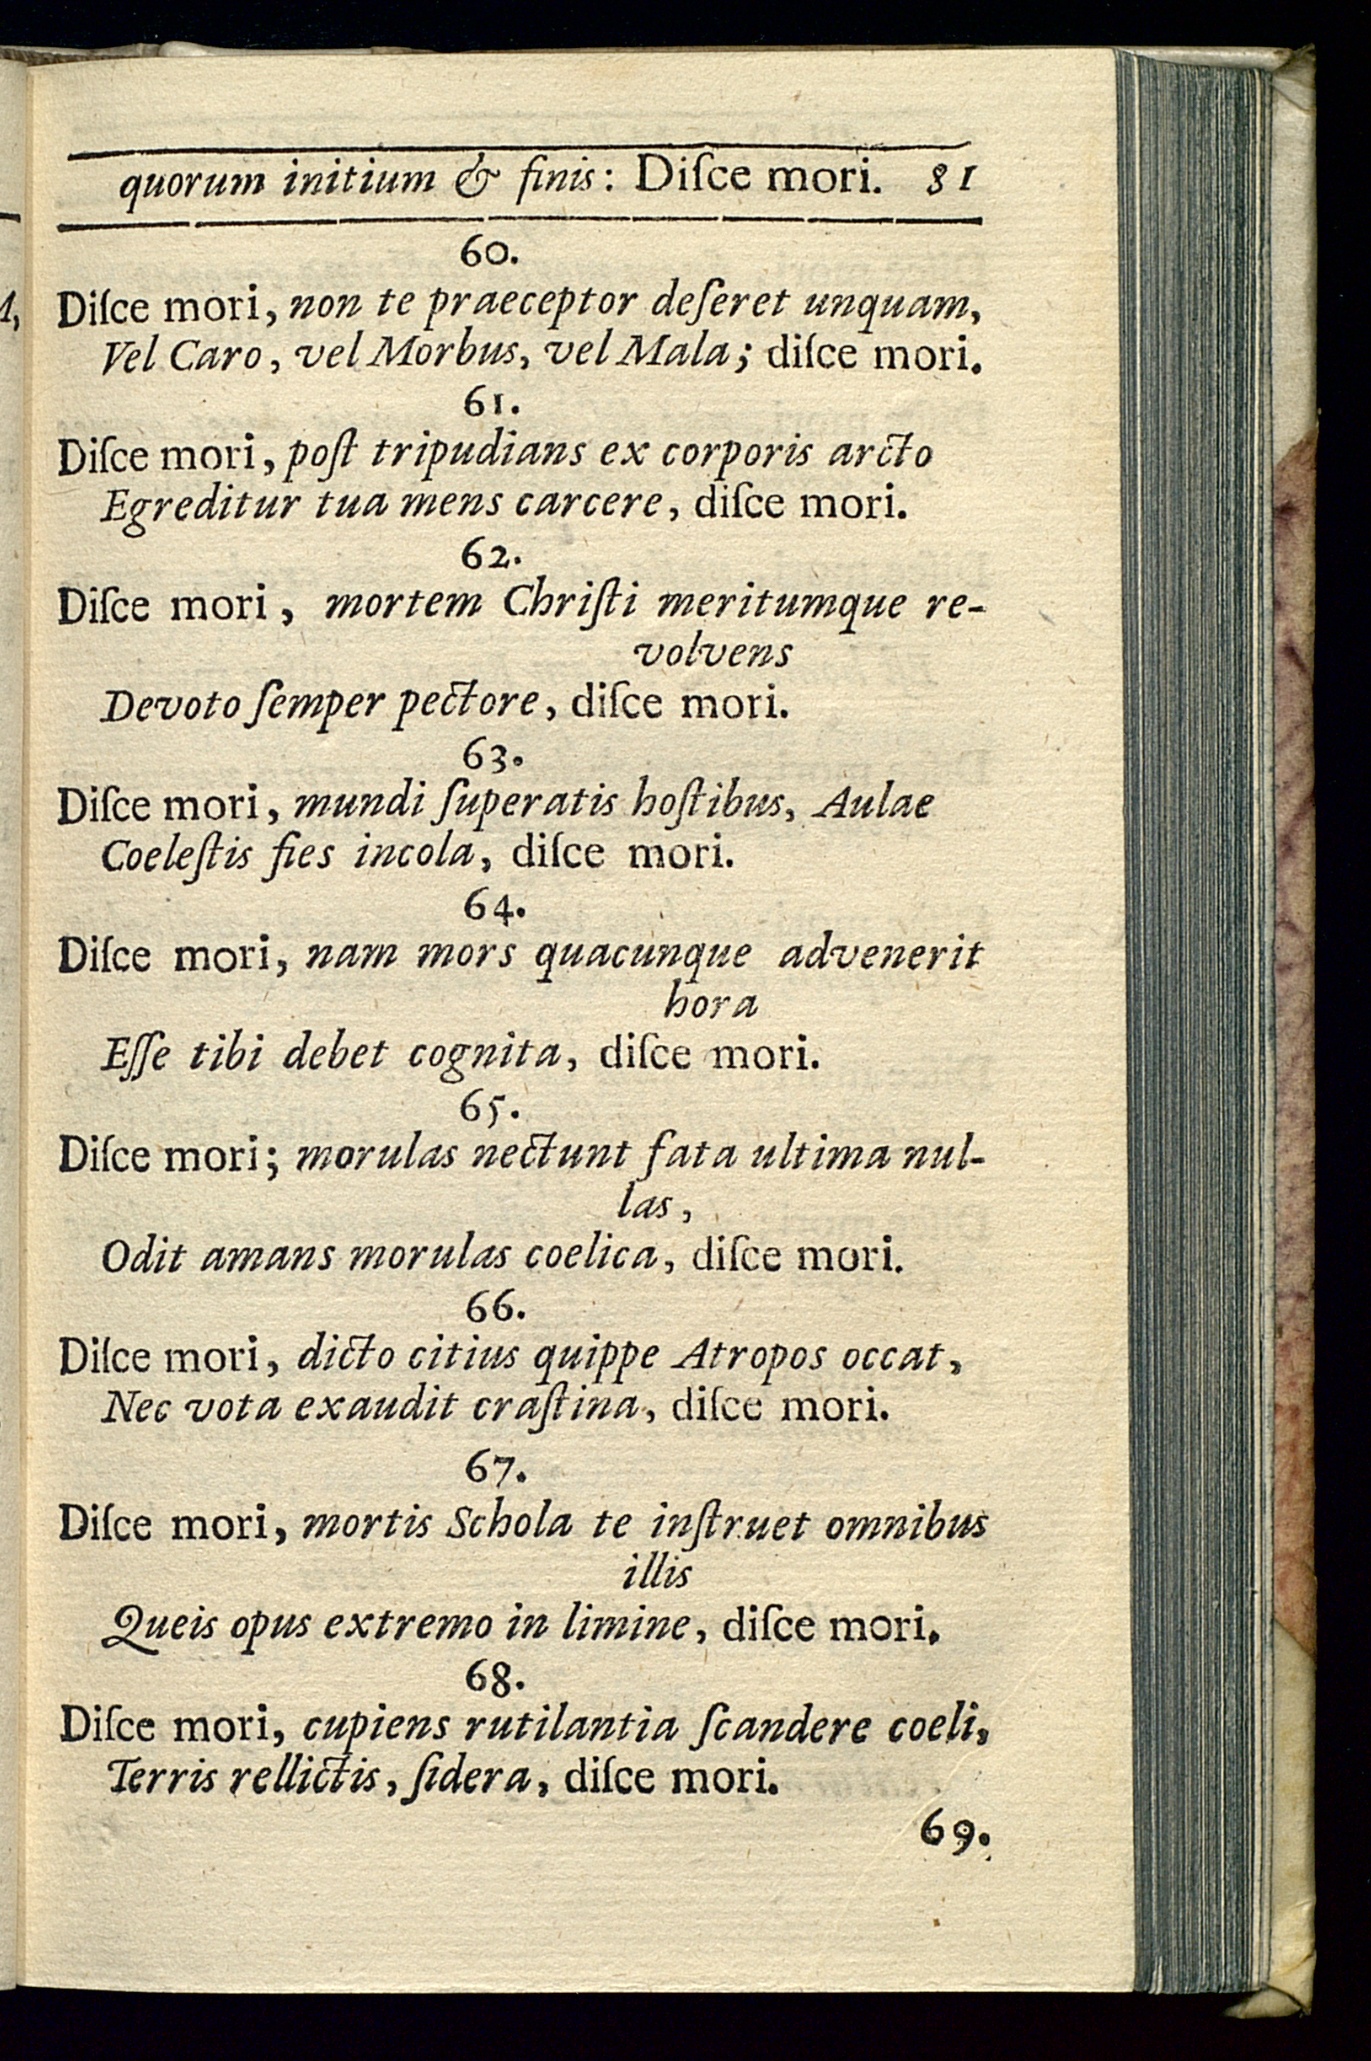 quorum initium & finis: Diſce mori. 81
60.
Diſce mori, non te praeceptor deſeret unquam,
Vel Caro, vel Morbus, vel Mala; diſce mori.
61.
Diſce mori, poſt tripudians ex corporis arcto
Egreditur tua mens carcere, diſce mori.
62.
Diſce mori, mortem Chriſti meritumque re-
volvens
Devoto ſemper pectore, diſce mori.
63.
Diſce mori, mundi ſuperatis hoſtibus, Aulae
Coeleſtis fies incola, diſce mori.
64.
Diſce mori, nam mors quacunque advenerit
hora
Eſſe tibi debet cognita, diſce mori.
65.
Diſce mori; morulas nectunt fata ultima nul-
las,
Odit amans morulas coelica, diſce mori.
66.
Diſce mori, dicto citius quippe Atropos occat,
Nec vota exaudit craſtina, diſce mori.
67.
Diſce mori, mortis Schola te inſtruet omnibus
illis
Queis opus extremo in limine, diſce mori.
68.
Diſce mori, cupiens rutilantia ſcandere coeli,
Terris rellictis, ſidera, diſce mori.
69.